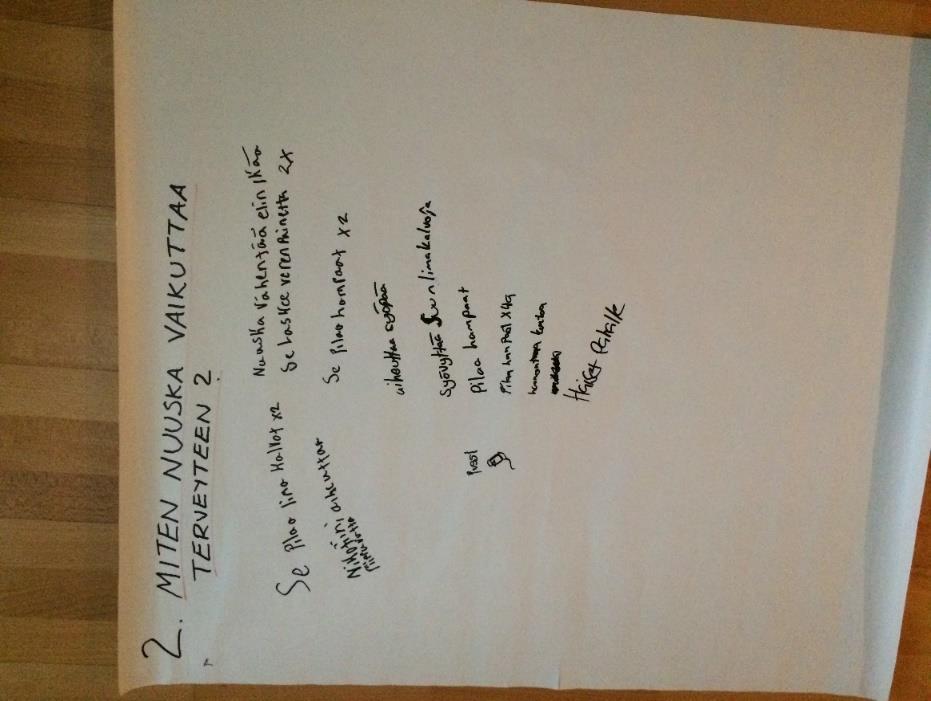 2. MITEN NUUSKA VAIKUTTAA
TERVEYTEEN ?
Nuuska vähentää elin ikää
Se Laskee verenpainetta 2X
Se Pilaa hampaat x2
Se Pilaa lima kalvot x2
Nikotiini aiheuttaa
aiheuttaa syöpää
Syövyttää suun limakalvoja
Pilaa hampaat
Pilaa hampaat x49
Haiset Paskalle